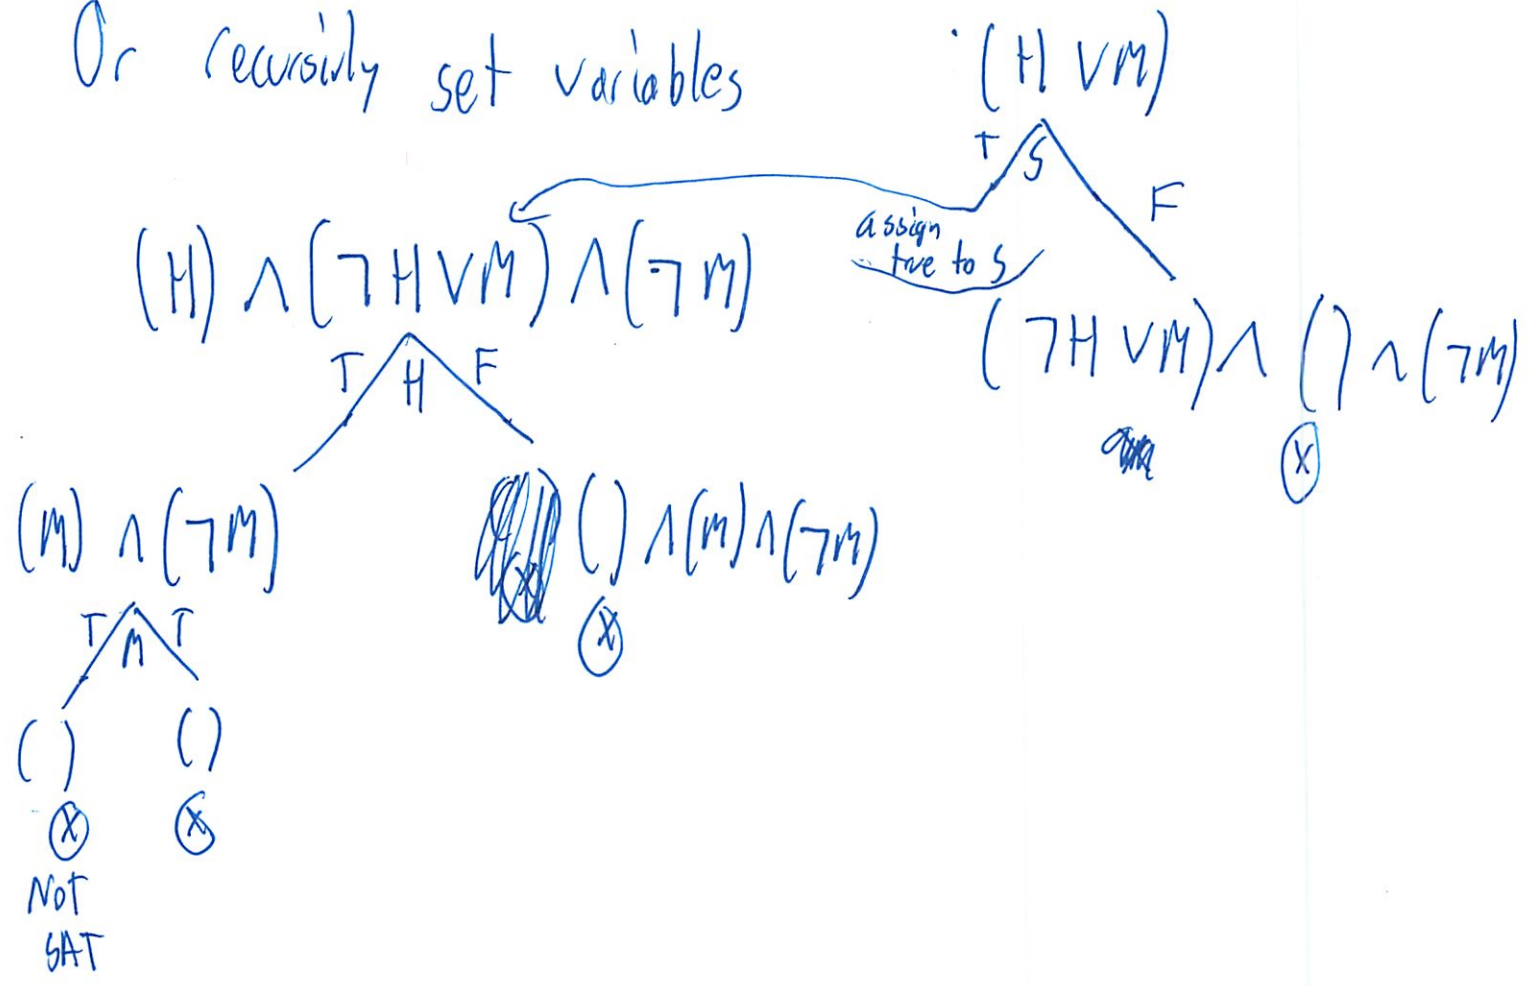 Or recursivly set variables
(H ∨ M)
T S F
assign
true to S
(H) ∧ (¬H ∨ M) ∧ (¬M)
(¬H ∨ M) ∧ () ∧ (¬M)
T H F
X
(M) ∧ (¬M)
() ∧ (M) ∧ (¬M)
X
T M T
() ()
X X
NOT
SAT